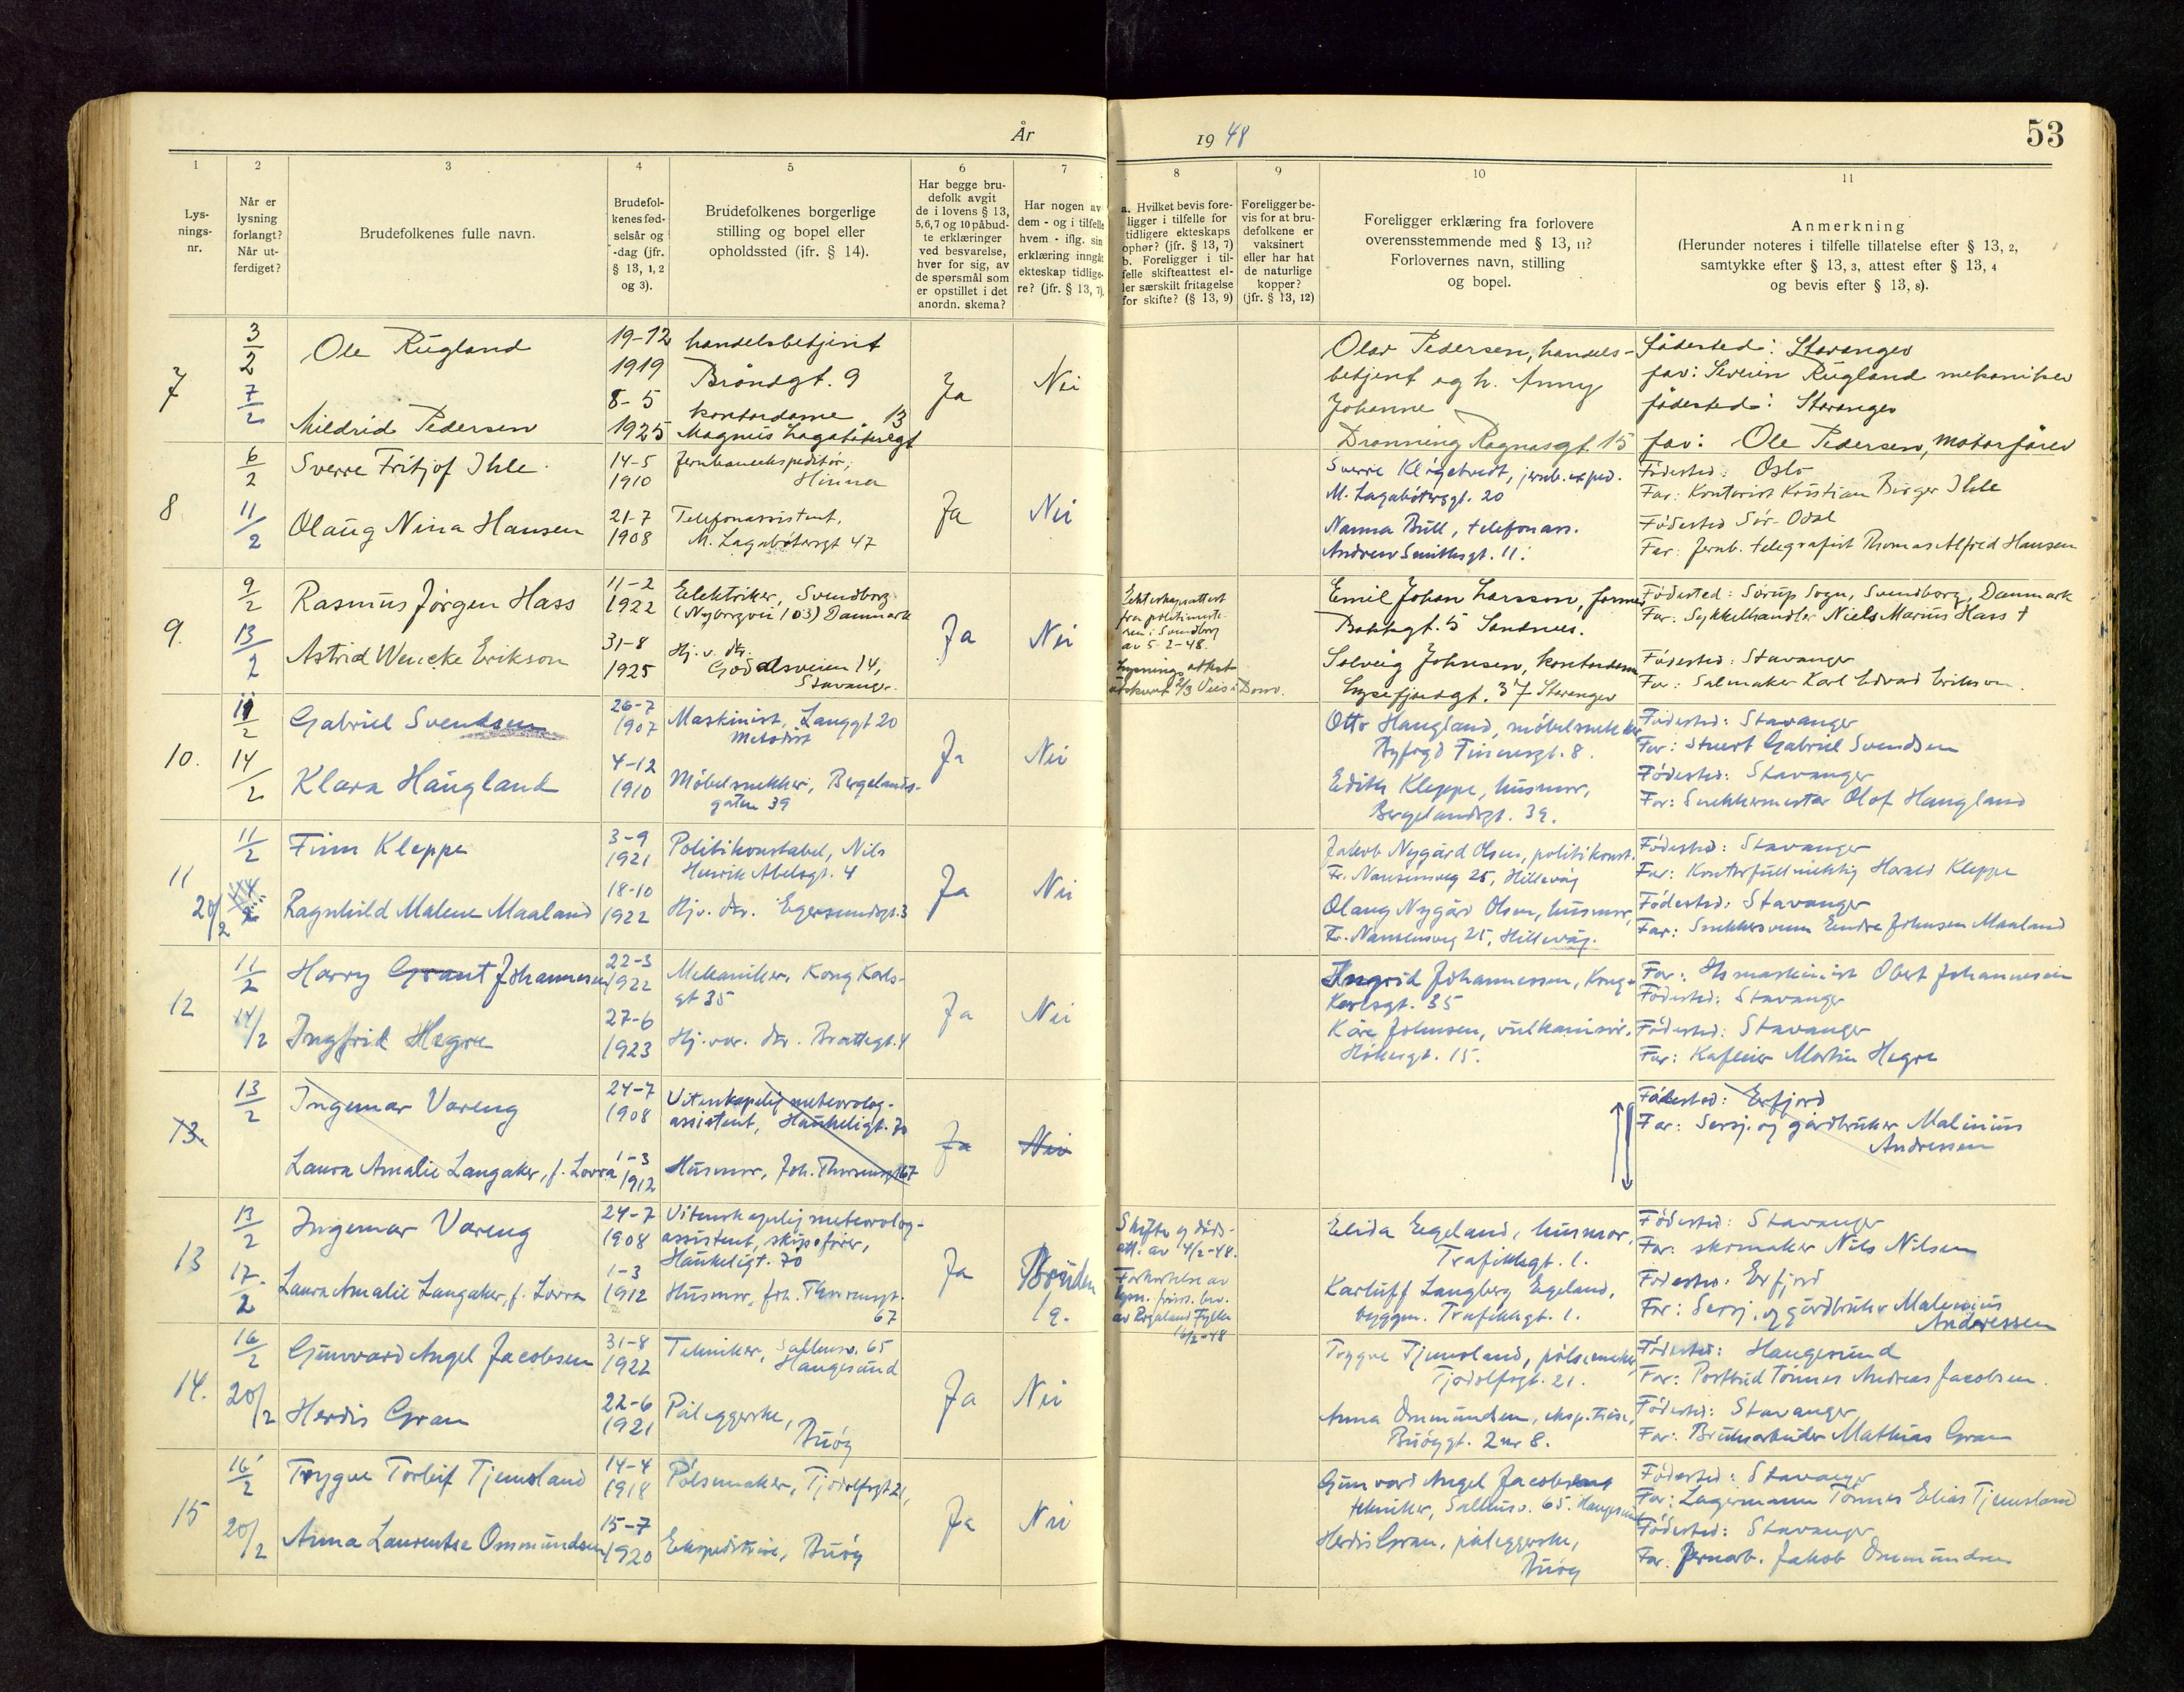 År
19 48
53
1
2
3
4
5
6
7
8
9
10
11
Lys-
nings-
nr.
Når er
lysning
forlangt?
Når ut-
ferdiget?
Brudefolkenes fulle navn.
Brudefol-
kenes fød-
selsår og
-dag (jfr.
§ 13, 1, 2
og 3).
Brudefolkenes borgerlige
stilling og bopel eller
opholdssted (jfr. § 14).
Har begge bru-
defolk avgit
de i lovens § 13,
5,6,7 og 10 påbud-
te erklæringer
ved besvarelse,
hver for sig, av
de spørsmål som
er opstillet i det
anordn. skema?
Har nogen av
dem - og i tilfelle
hvem - iflg. sin
erklæring inngåt
ekteskap tidlige-
re? (jfr. § 13, 7).
a. Hvilket bevis fore-
ligger i tilfelle for
tidligere ekteskaps
ophør? (jfr. § 13, 7)
b. Foreligger i til-
felle skifteattest el-
ler særskilt fritagelse
for skifte? (§ 13, 9)
Foreligger be-
vis for at bru-
defolkene er
vaksinert
eller har hat
de naturlige
kopper?
(jfr. § 13, 12)
Foreligger erklæring fra forlovere
overensstemmende med § 13, 11?
Forlovernes navn, stilling
og bopel.
Anmerkning
(Herunder noteres i tilfelle tillatelse efter § 13, 2,
samtykke efter § 13, 3, attest efter § 13, 4
og bevis efter § 13, 8).
7
3/2
7/2
Ole Rugland
19-12
1919
handelsbetjent
Brøndgt. 9
Mildrid Pedersen
8-5
1925
kontordame 13
Magnus Lagabøtersgt
Ja
Nei
Olav Pedersen, handels-
betjent og h. Anny
Johanne
Dronning Ragnasgt. 15
fødested: Stavanger
far: Severin Rugland mekaniker
fødested: Stavanger
far: Ole Pedersen, motorfører
8
6/2
11/2
Sverre Fritjof Ihle
14-5
1910
Jernbaneekspeditør,
Hinna
Olaug Nina Hansen
21-7
1908
Telefonassistent,
M. Lagabøtersgt 47
Ja
Nei
M. Lagabøtersgt. 20
Nanna Bull, telefonass.
Andrew Smithsgt. 11.
Fødested: Oslo
Far: Kontorist Kristian Birger Ihle
Fødested Sør-Odal
Far: Jernb. telegrafist Thomas Alfred Hansen
9.
9/2
13/2
Rasmus Jørgen Hass
11-2
1922
Elektriker, Svendborg
(Nyborgvei 103) Danmark
Astrid Wencke Erikson
31-8
1925
Hj. v. dtr.
Godalsveien 14,
Stavanger.
Ja
Nei
Ekteskapsattest
fra politimeste-
ren i Svendborg
av 5-2-48.
Lysningsattest
Emil Johan Larsson, former
Bakkgt. 5 Sandnes.
Solveig Johnsen, kontordame
Lysefjordgt. 37 Stavanger
Fødested: Sørup Sogn, Svendborg, Danmark
Far: Sykkelhandler Niels Marius Hass †
Fødested: Stavanger
Far: Salmaker Karl Edvard Erikson.
10.
11/2
14/2
Gabriel Svendsen
26-7
1907
Maskinist, Langgt 20
Metodist
Klara Haugland
4-12
1910
Møbelsnekker, Bergelands-
gaten 39
Ja
Nei
Otto Haugland, møbelsnekker
Byfogd Finnesgt. 8.
Edith Kleppe, husmor,
Bergelandsgt. 39.
Fødested: Stavanger
Far: Stuert Gabriel Svendsen
Fødested: Stavanger
Far: Snekkermester Olof Haugland
11
11/2
20/2
Finn Kleppe
3-9
1921
Politikonstabel, Nils
Henrik Abelsgt. 4
Ragnhild Malene Maaland
18-10
1922
Hjv. dtr. Egersundsgt. 3
Ja
Nei
Jakob Nygård Olsen, politikonst.
Fr. Nansensveg 25, Hillevåg
Olaug Nygård Olsen, husmor,
Fr. Nansensveg 25, Hillevåg.
Fødested: Stavanger
Far: Kontorfullmektig Harald Kleppe
Fødested: Stavanger
Far: Snekkersvenn Endre Johnsen Maaland
12
11/2
14/2
Harry Grant Johannesen
22-3
1922
Mekaniker, Kong Karls-
gt 35
Ingfrid Hegre
27-6
1923
Hj. v. dtr. Brattegt. 4
Ja
Nei
Ingrid Johannessen, Kong-
Karlsgt. 35
Kåre Johnsen, vulkanisør,
15.
Far: Hs maskinist Obert Johannesen
Fødested: Stavanger
Fødested: Stavanger
Far: Kafeeier Martin Hegre
13.
13/2
Ingemar Vareng
24-7
1908
Vitenskapelig meteorolog-
assistent, Haukeligt. 70
Laura Amalie Langaker, f. Lovra
1-3
1912
Husmor, Joh. Thorsensgt 67
Ja
Nei
Fødested: Erfjord
Far: Sersj. og gårdbruker Malinius
Andressen
13
13/2
17/2
Ingemar Vareng
24-7
1908
Vitenskapelig meteorolog-
assistent, skipsfører,
Haukeligt. 70
Laura Amalie Langaker, f. Lovra
1-3
1912
Husmor, Joh. Thorsensgt.
67
Ja
Bruden
1 g.
Skifte og døds-
att. av 4/2-48.
Forkortelse av
av Rogaland Fylke
16/2-48
Elida Egeland, husmor,
Trafikkgt. 1.
Karluff Langberg Egeland,
byggm. Trafikkgt. 1.
Fødested: Stavanger
Far: skomaker Nils Nilsen
Fødested: Erfjord
Far: Sersj. og gårdbruker Malenius
Anderessen
14.
16/2
20/2
Gunvard Angel Jacobsen
31-8
1922
Tekniker, Salhusv. 65
Haugesund
Herdis Gran
22-6
1921
Påleggerske,
Buøy
Ja
Nei
Trygve Tjemsland, pølsemaker
Tjodolfsgt. 21.
Anna Ommundsen, eksp.trise,
Buøygt. 2 nr 8.
Fødested: Haugesund
Far: Postbud Tønnes Andreas Jacobsen.
Fødested: Stavanger
Far: Bruksarbeider Mathias Gran
15
16/2
20/2
Trygve Torleif Tjemsland
14-4
1918
Pølsemaker, Tjodolfsgt 21,
Anna Laurentse Ommundsen
15-7
1920
Ekspeditrise, Buøy
Ja
Nei
Gunvard Angel Jacobsen
tekniker, Salhusv. 65. Haugesund
Herdis Gran, påleggerske,
Buøy
Fødested: Stavanger
Far: Lagermann Tønnes Elias Tjemsland
Fødested: Stavanger
Far: Jernarb. Jakob Ommundsen